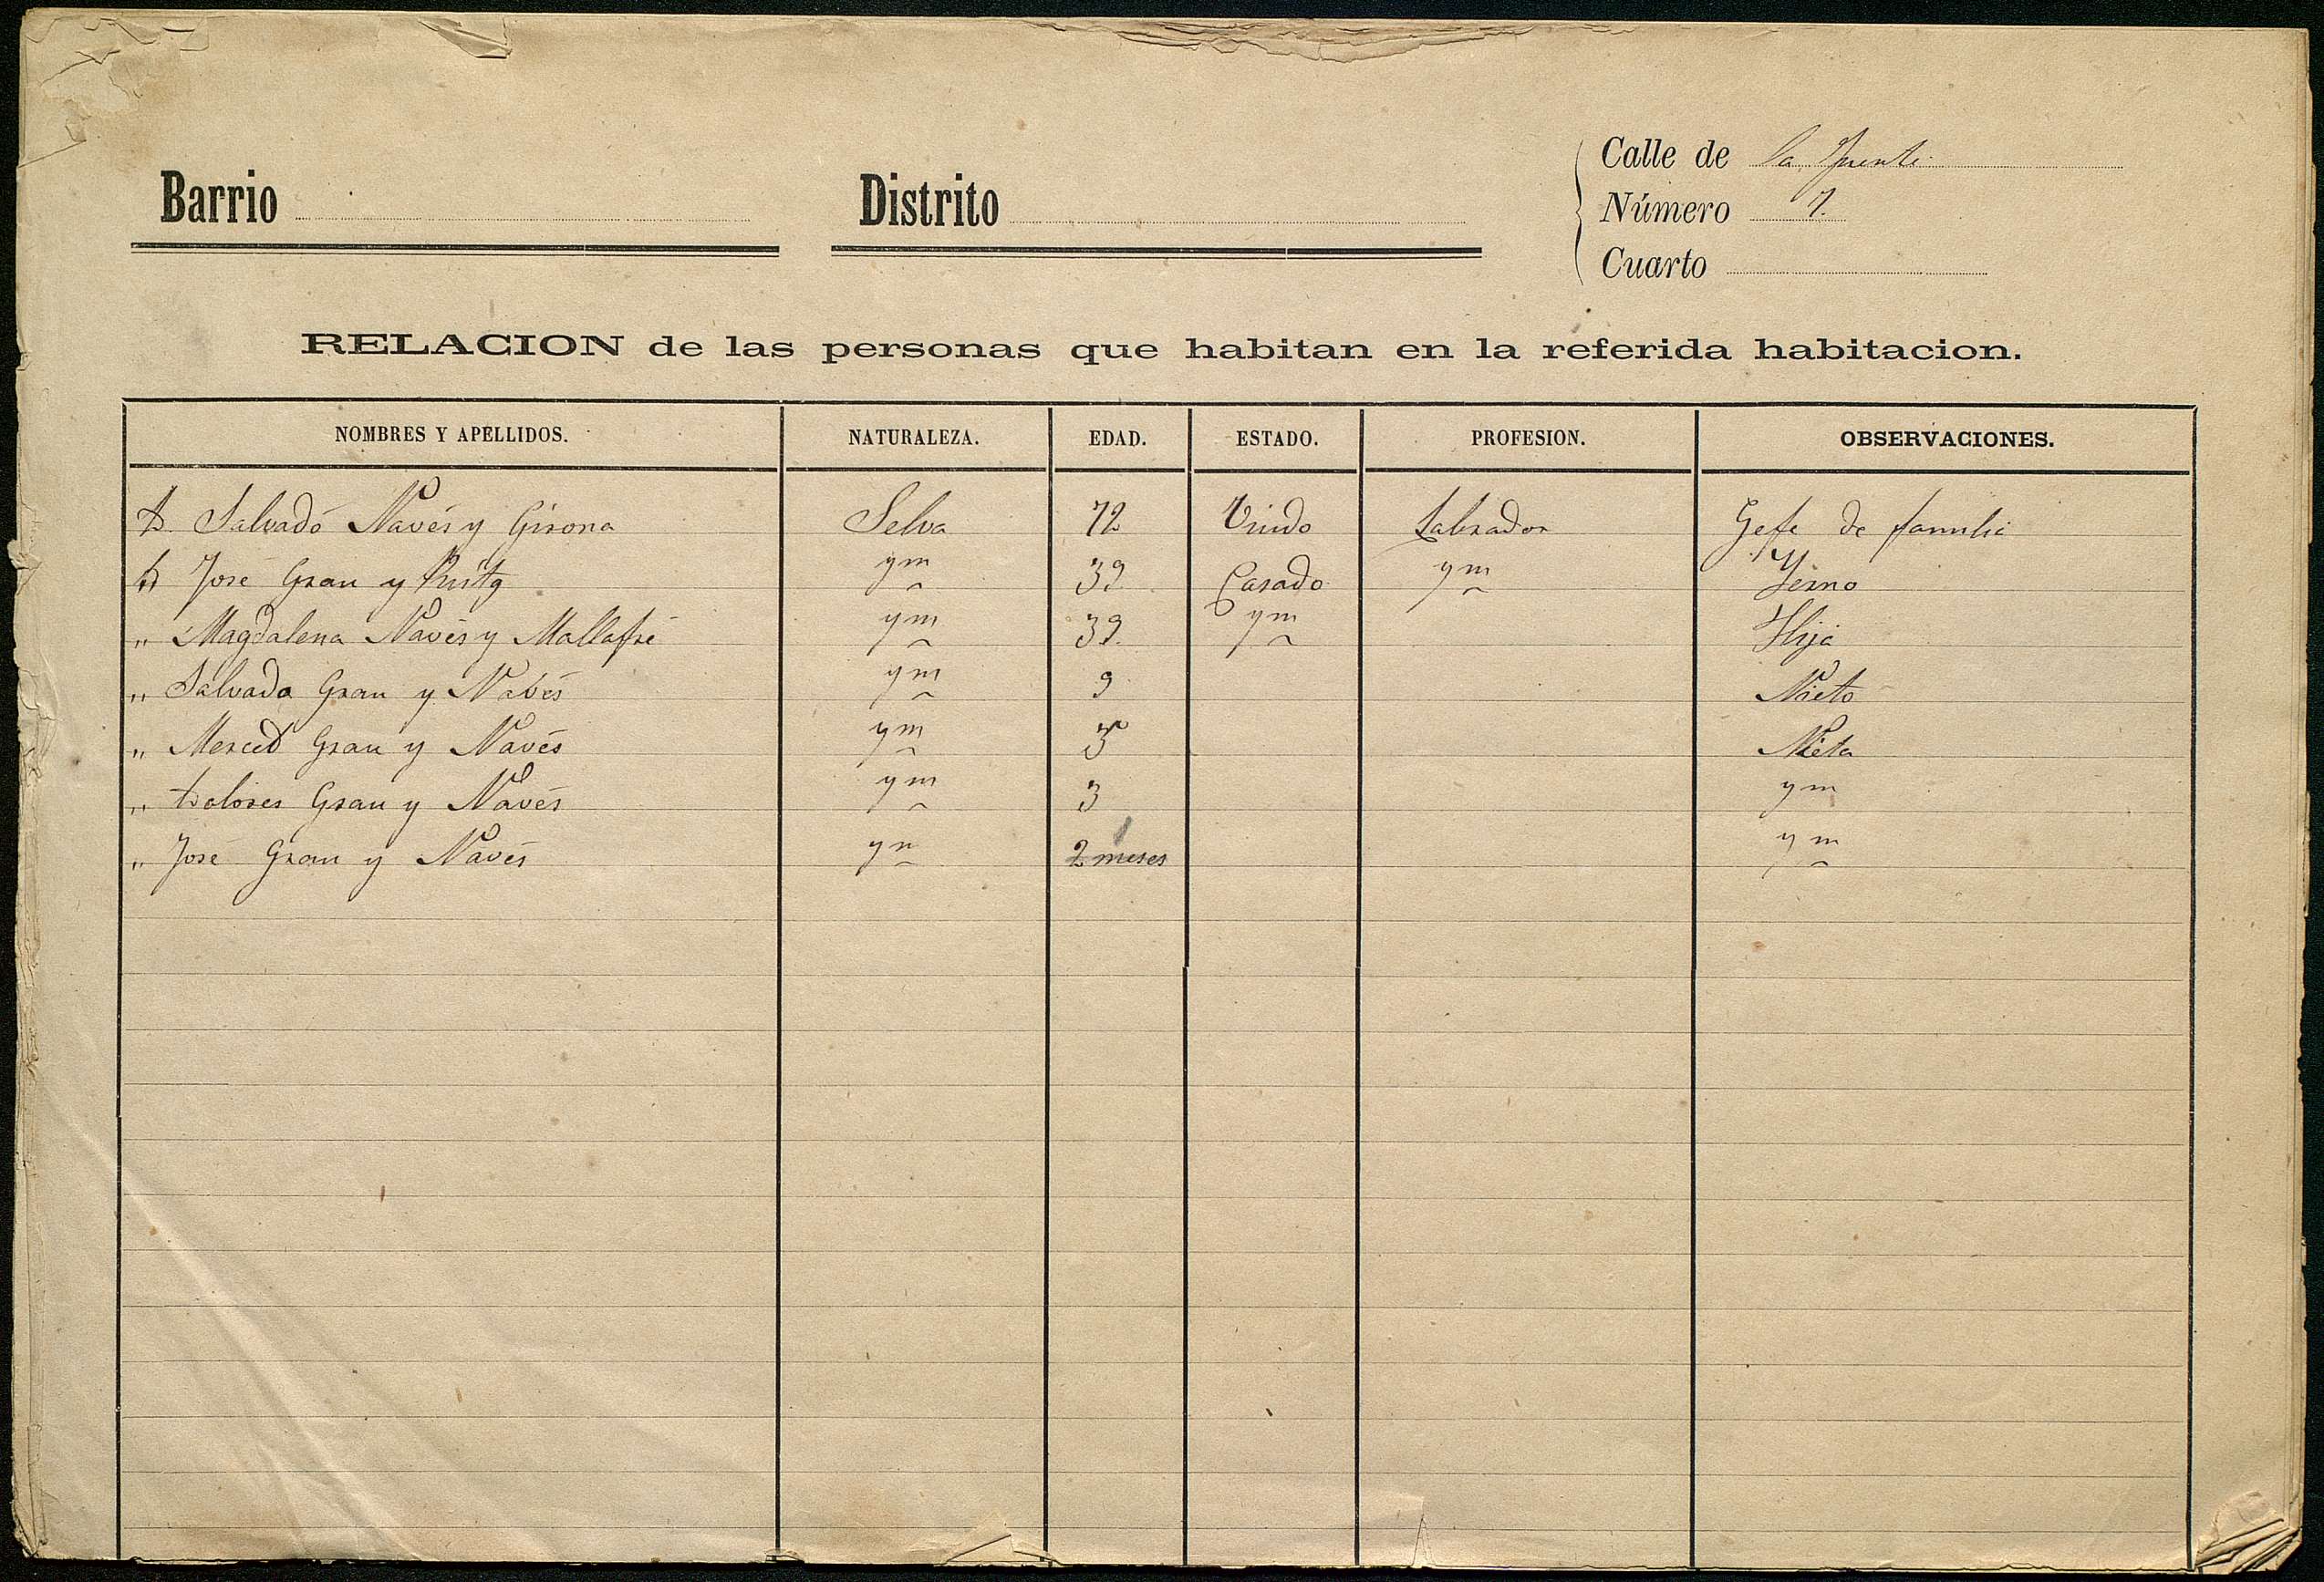 Barrio
Distrito
Calle de la Fuente
Número 7.
Cuarto
RELACION de las personas que habitan en la referida habitacion.
NOMBRES Y APELLIDOS. NATURALEZA. EDAD. ESTADO. PROFESION. OBSERVACIONES.
D. Salvadó Navés y Girona Selva 72 Viudo Labrador Gefe de familia
D José Grau y Puitg ym 39 Casado ym Yerno
" Magdalena Navés y Mallafré ym 39 ym Hija
" Salvado Grau y Navés ym 9 Nieto
" Merced Grau y Navés ym 5 Nieta
" Dolores Grau y Navés ym 3 ym
" José Grau y Navés ym 2 meses ym